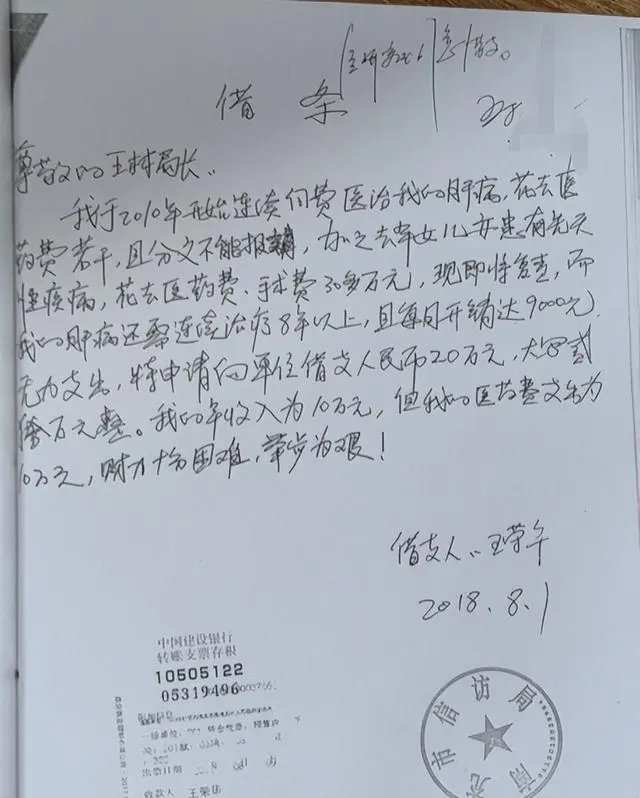 借条
尊敬的王林局长:
我于2010年开始连续自费医治我的肝病,花去医
药费若干,且分文不能报销,加之去年女儿亦患有先天
性疾病,花去医药费、手术费30多万元,现即将复查,而
我的肝病还需连续治疗8年以上,且每月开销达9000元,
无力支出,特申请向单位借支人民币20万元,大写贰
拾万元整。我的年收入为10万元,但我的医药费支出为
10万元,财力十分困难,举步为艰!
借支人:王荣
2018.8.1
中国建设银行
转账支票存根
10505122
05319496
出票日期
收款人 王荣
市信访局